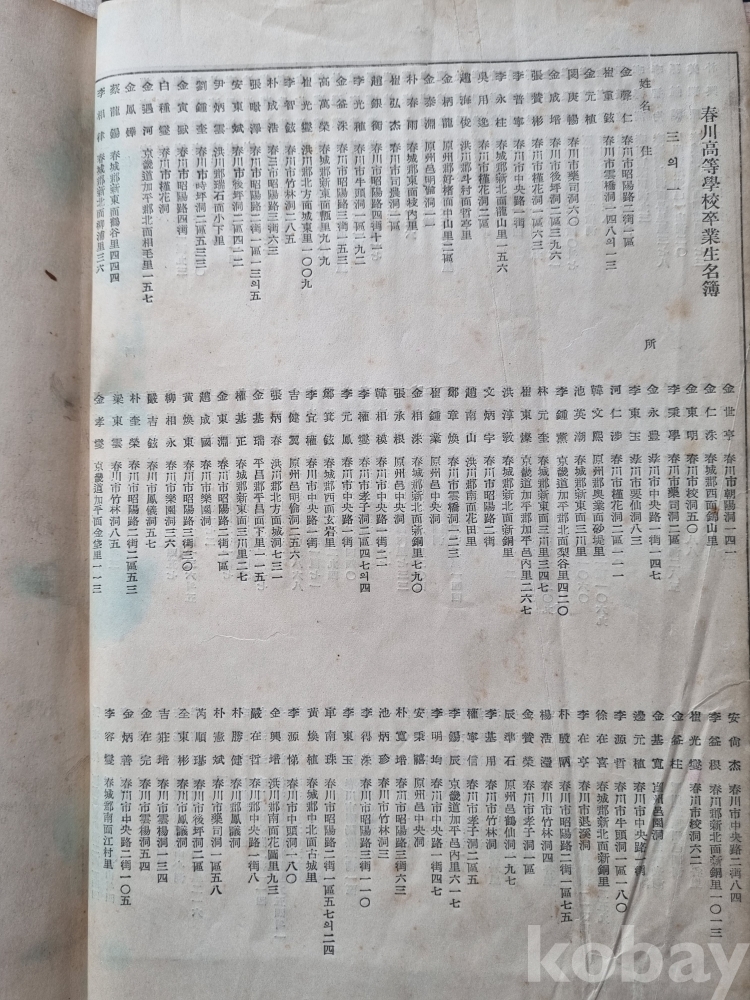 春川高等學校卒業生名簿
三의一
姓名 住所
金摩仁 春川市昭陽路二街一區
崔童鉉 春川市雲橋洞一四八의一三
金元植
閔庚暢 春川市藥司洞六〇
金成培 春川市後坪洞一區三九六
張贊彬 春川市槿花洞一區六三
李善寧 春川市中央路一街
李永柱 春城郡新北面龍山里一五六
吳用逸 春川市槿花洞二
趙海俊 洪川郡斗村面哲亭里
金柄龍 原州郡好楮面中山里二區
金泰淵 原州邑明倫洞一一
朴春雨 春城郡東面枝內里
崔弘杰 春川市司農洞一區
趙銀衡 春川市昭陽路四街十二
李光種 春川市牛頭洞一區一九二
金釜洙 春川市昭陽路三街一五三
高萬榮 春城郡新東面甑里九一九
崔光燮 洪川郡北方面城東里一〇〇九
李智鉉 春川市竹林洞二八五
朴成浩 春三市昭陽路三街六三
張暾澤 春川市昭陽路二街一區一三의五
安東斌 春川市後坪洞二區四二二
尹炳雲 洪川郡瑞石面小下里
劉鍾奎 春川市時坪洞二區五三三
金寅獻 春川市昭陽路四街
白種燮 春川市槿花洞
金遇河 京畿道加平郡北面相毛里一五七
金鳳鏵
蔡龍錫 春城郡新東面鶴谷里四四四
李相律 春城郡新北面柳浦里三六
金世亭 春川市朝陽洞一四一
金仁洙 春城郡西面錦山里
金東明 春川市校洞五〇
李秉學 春川市藥司洞二區
金永豊 春川市中央路一街一四七
李東玉 春川市要仙洞八三
河仁涉 春川市槿花洞二一一一
韓文熙 原州郡興業面砂堤里
池英潮
李鍾薰 京畿道加平郡北面梨谷里四二〇
林元奎 春城郡新東面三川里三四七
崔東燦 京畿道加平郡加平邑內里二六七
洪淳敬 春城郡新北面新銅里
文炳宇 春川市昭陽路二街
趙南山 洪川郡南面花田里
鄭章煥 春川市雲橋洞一二三
崔鍾業 原州邑中央洞
金相洙 春城郡新北面新銅里七九〇
張永根 原州邑中央洞
韓相模 春川市中央路一街二一
李種燮 春川市孝子洞二區四七의四
李元鳳 春川市中央路一街
鄭箕鉉 春城郡西面玄岩里
李宜權 春川市中央路一街
吉健翼 原州邑明倫洞二五六
張炳浩 洪川郡北方面城洞七三一
金基瑞 平昌郡平昌面下里一一五
權基正 春城郡新東面三川里二七
金東淵 春川市昭陽路二街一區
趙成國 春川市樂園洞
黃煥東 春川市昭陽路三街三〇
柳相永 春川市樂園洞三六
嚴吉鉉 春川市鳳儀洞五七
朴奎榮 春川市昭陽路二街二區五三
梁東雲 春川市竹林洞八五
金孝燮 京畿道加平面金垈里一一三
安商杰 春川市中央路二街八四
李釜根 春川郡新北面新銅里一〇一三
崔光燮 春川市校洞六二
金釜柱
金基寬
邊元植 春川市中央路三街
李源哲 春川市牛頭洞一區一八〇
徐在喜 春城郡新北面新銅里
李在亭 春川市退溪洞
朴駿陌 春川市昭陽路二街一區七五
楊浩漫 春川市竹林洞四
金贊榮 春川市孝子洞一區
辰準石 原州邑鶴仙洞一九七
李基用 春川市竹林洞
權寧信 春川市孝子洞二區五
李錫辰 京畿道加平邑內里六一七
李明均 春川市中央路一街四七
安秉禧 原州邑中央洞
朴寬培 春川市昭陽路三街六三
池炳珍 春川市竹林洞三
李得洙 春川市昭陽路三街一一〇
李東玉
車南珠 春川市昭陽路二街一區五七의二四
黃煥植 春城郡中北面古城里
李源悌 春川市中頭洞一八〇
全興培 洪川郡南面花園里九三
嚴在哲 春川郡中央路一街八
朴勝健 春川郡鳳儀洞
朴憲斌 春川市藥司洞一區五八
芮順瑾 春川市後坪洞二區
全東彬 春川市鳳儀洞
吉莊培 春川市雲橋洞一三四
金在完 春川市雲橋洞五四
金炳善 春川市中央路二街一〇五
李容燮 春城郡南面江村里
kobay